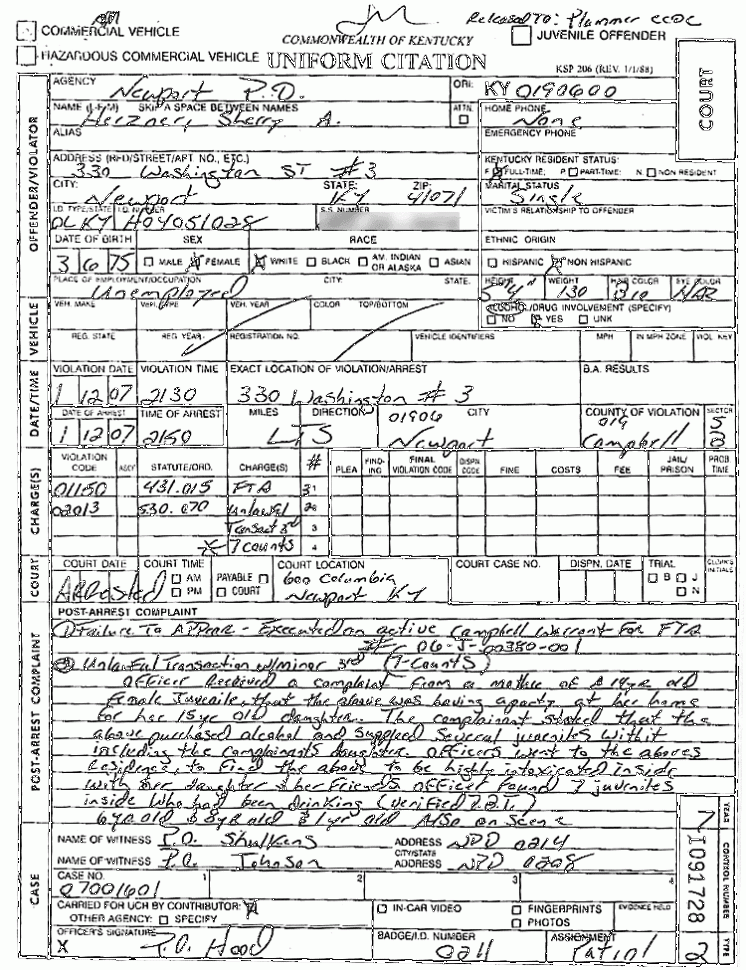 Released To: Plummer CCDC
COMMERCIAL VEHICLE
COMMONWEALTH OF KENTUCKY
JUVENILE OFFENDER
HAZARDOUS COMMERCIAL VEHICLE
UNIFORM CITATION
KSP 206 (REV. 1/1/88)
COURT
OFFENDER/VIOLATOR
AGENCY Newport P.D. ORI: KY 0190600
NAME (L-F-M) SKIP A SPACE BETWEEN NAMES ATTN. HOME PHONE
Herzner, Sherry A. None
ALIAS EMERGENCY PHONE
ADDRESS (RFD/STREET/APT. NO., ETC.) KENTUCKY RESIDENT STATUS:
330 Washington ST #3 F FULL-TIME: P PART-TIME: N NON RESIDENT
CITY: STATE: ZIP: MARITAL STATUS
Newport KY 41071 Single
I.D. TYPE/STATE I.D. NUMBER S.S. NUMBER VICTIM'S RELATIONSHIP TO OFFENDER
OL KY H04051028
DATE OF BIRTH SEX RACE ETHNIC ORIGIN
3 6 75 MALE FEMALE WHITE BLACK AM. INDIAN OR ALASKA ASIAN HISPANIC NON HISPANIC
PLACE OF EMPLOYMENT/OCCUPATION CITY: STATE: HEIGHT WEIGHT HAIR COLOR EYE COLOR
Unemployed 5'4" 130 Bro HAZ
VEHICLE
VEH. MAKE VEH. TYPE VEH. YEAR COLOR TOP/BOTTOM ALCOHOL/DRUG INVOLVEMENT (SPECIFY)
NO YES UNK
REG. STATE REG. YEAR REGISTRATION NO. VEHICLE IDENTIFIERS MPH IN MPH ZONE VIOL. KEY
DATE/TIME
VIOLATION DATE VIOLATION TIME EXACT LOCATION OF VIOLATION/ARREST B.A. RESULTS
1 12 07 2130 330 Washington #3
DATE OF ARREST TIME OF ARREST MILES DIRECTION 01906 CITY COUNTY OF VIOLATION SECTOR
1 12 07 2150 Newport 019 Campbell
CHARGE(S)
VIOLATION CODE ASCF STATUTE/ORD. CHARGE(S) # PLEA FINDING FINAL VIOLATION CODE DISPN. CODE FINE COSTS FEE JAIL/PRISON PROB TIME
01150 431.015 FTA 1
02013 530.070 Unlawful 2
Transact 3rd 3
7 counts 4
COURT
COURT DATE COURT TIME PAYABLE COURT LOCATION COURT CASE NO. DISPN. DATE TRIAL CLERK'S INITIALS
Arrested AM PM COURT 600 Columbia B J
Newport KY N
POST-ARREST COMPLAINT
POST-ARREST COMPLAINT
1) Failure To Appear - Executed on active Campbell Warrant for FTA
# 06-J-00380-001
2) Unlawful Transaction w/minor 3rd (7-Counts)
Officer Received a complaint from a mother of a 14yr old
Female Juvenile, that the above was having a party at her home
for her 15yr old daughter. The complainant stated that the
above purchased alcohol and supplied several juveniles with it
including the complainants daughter. Officers went to the aboves
Residence, to find the above to be highly intoxicated inside
with her daughter & her friends officer found 7 juveniles
inside who had been drinking (Verified P.B.T.)
6yr old 1yr old also on scene
CASE
NAME OF WITNESS P.O. Shulkens ADDRESS NPD 0214
CITY/STATE
NAME OF WITNESS P.O. Johnson ADDRESS NPD 0208
CASE NO. 1 2 3 4
07001601
CARRIED FOR UCR BY CONTRIBUTOR: IN-CAR VIDEO FINGERPRINTS EVIDENCE HELD
OTHER AGENCY: SPECIFY PHOTOS
OFFICER'S SIGNATURE BADGE/I.D. NUMBER ASSIGNMENT
X P.O. Hood 0211 Patrol
YEAR 7
CONTROL NUMBER I091728
TYPE 2